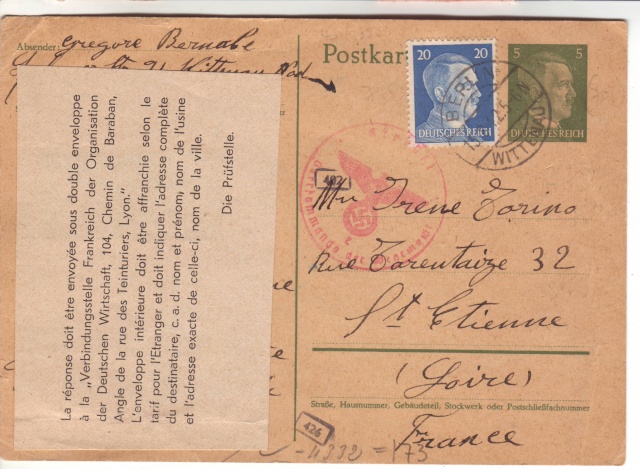 Absender: Gregore Bernabe
Postkar
20 20
DEUTSCHES REICH
5 5
DEUTSCHES REICH
BERLIN
WITTENAU
La réponse doit être envoyée sous double enveloppe
à la „Verbindungsstelle Frankreich der Organisation
der Deutschen Wirtschaft, 104, Chemin de Baraban,
Angle de la rue des Teinturiers, Lyon."
L'enveloppe intérieure doit être affranchie selon le
tarif pour l'Etranger et doit indiquer l'adresse complète
du destinataire, c. a. d. nom et prénom, nom de l'usine
et l'adresse exacte de celle-ci, nom de la ville.
Die Prüfstelle.
Oberkommando der Wehrmacht
402
Irene Torino
Rue Tarentaize 32
St Etienne
(Loire)
Straße, Hausnummer, Gebäudeteil, Stockwerk oder Postschließfachnummer
France
426